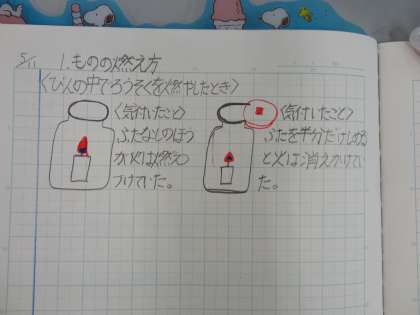 5/11
1.ものの燃え方
〈びんの中でろうそくを燃やしたとき〉
〈気付いたこと〉
ふたなしのほう
が火は燃えつ
づけていた。
〈気付いたこと〉
ふたを半分だけしめる
と火は消えかけてい
た。